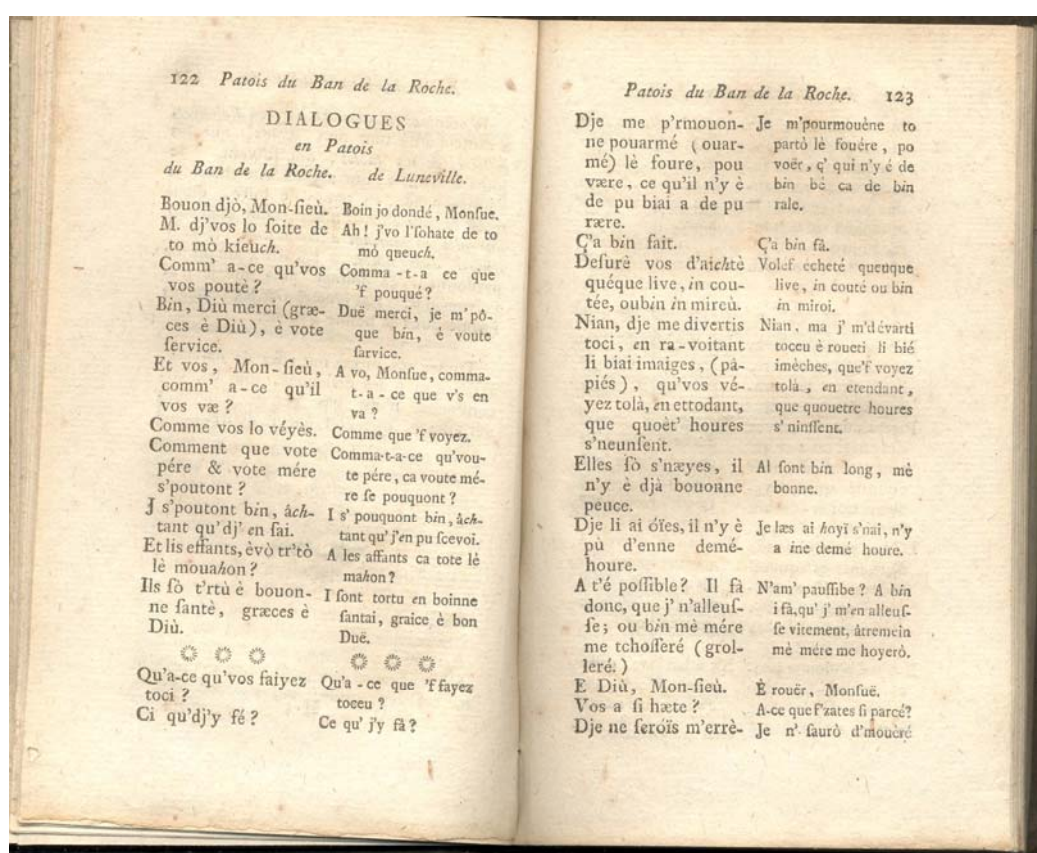 122 Patois du Ban de la Roche.
DIALOGUES
en Patois
du Ban de la Roche.
Bouon djò, Mon-ſieù.
M. dj'vos lo ſoite de
to mò kieùch.
Comm' a-ce qu'vos
vos poutè ?
Bin, Diù merci (græ-
ces è Diù), è vote
ſervice.
Et vos, Mon-ſieù,
comm' a-ce qu'il
vos væ ?
Comme vos lo véyès.
Comment que vote
pére & vote mére
s'poutont ?
J s'poutont bin, âch-
tant qu'dj' en ſai.
Et lis effants, èvò tr'tò
lè mouahon ?
Ils ſò t'rtù è bouon-
ne ſantè, græces è
Diù.
Qu'a-ce qu'vos faiyez
toci ?
Ci qu'dj'y fé ?
de Luneville.
Boin jo dondé, Monſue.
Ah ! j'vo l'ſohate de to
mò queuch.
Comma-t-a ce que
'f pouqué ?
Duë merci, je m'pô-
que bin, é voute
ſarvice.
A vo, Monſue, comma-
t-a-ce que v's en
va ?
Comme que 'f voyez.
Comma-t-a-ce qu'vou-
te pére, ca voute mé-
re ſe pouquont ?
I s' pouquont bin, âch-
tant qu' j'en pu ſcevoi.
A les affants ca tote lé
mahon ?
I ſont tortu en boinne
ſantai, graice è bon
Duë.
Qu'a-ce que 'f fayez
toceu ?
Ce qu' j'y fâ ?
Patois du Ban de la Roche. 123
Dje me p'rmouon-
ne pouarmé (ouar-
mé) lè foure, pou
være, ce qu'il n'y è
de pu biai a de pu
rære.
Ç'a bin fait.
Deſurè vos d'aichtè
quéque live, in cou-
tée, oubin in mireù.
Nian, dje me divertis
toci, en ra-voitant
li biai imaiges, (pâ-
piés), qu'vos vé-
yez tolà, en ettodant,
que quoèt' houres
s'neunſent.
Elles ſò s'næyes, il
n'y è djà bouonne
peuce.
Dje li ai óïes, il n'y è
pù d'enne demé-
houre.
A t'é poſſible ? Il fâ
donc, que j' n'alleuſ-
ſe ; ou bin mè mére
me tchoſſeré (grol-
leré.)
E Diù, Mon-ſieù.
Vos a ſi hæte ?
Dje ne ſeróïs m'errè-
Je m'pourmouène to
partò lè fouére, po
voër, ç' qui n'y é de
bin bé ca de bin
rale.
Ç'a bin fâ.
Voleſ echeté queuque
live, in couté ou bin
in miroi.
Nian, ma j' m'dévarti
toceu è roueti li bié
imèches, que'f voyez
tolà, en etendant,
que quouetre houres
s' ninſſent.
Al ſont bin long, mè
bonne.
Je læs ai hoyï s'nai, n'y
a ine demé houre.
N'am' pauſſibe ? A bin
i fâ, qu' j' m'en alleuſ-
ſe vitement, âtremein
mè mére me hoyerò.
È rouër, Monſuë.
A-ce que f'zates ſi parcé?
Je n' ſaurò d'mouèré